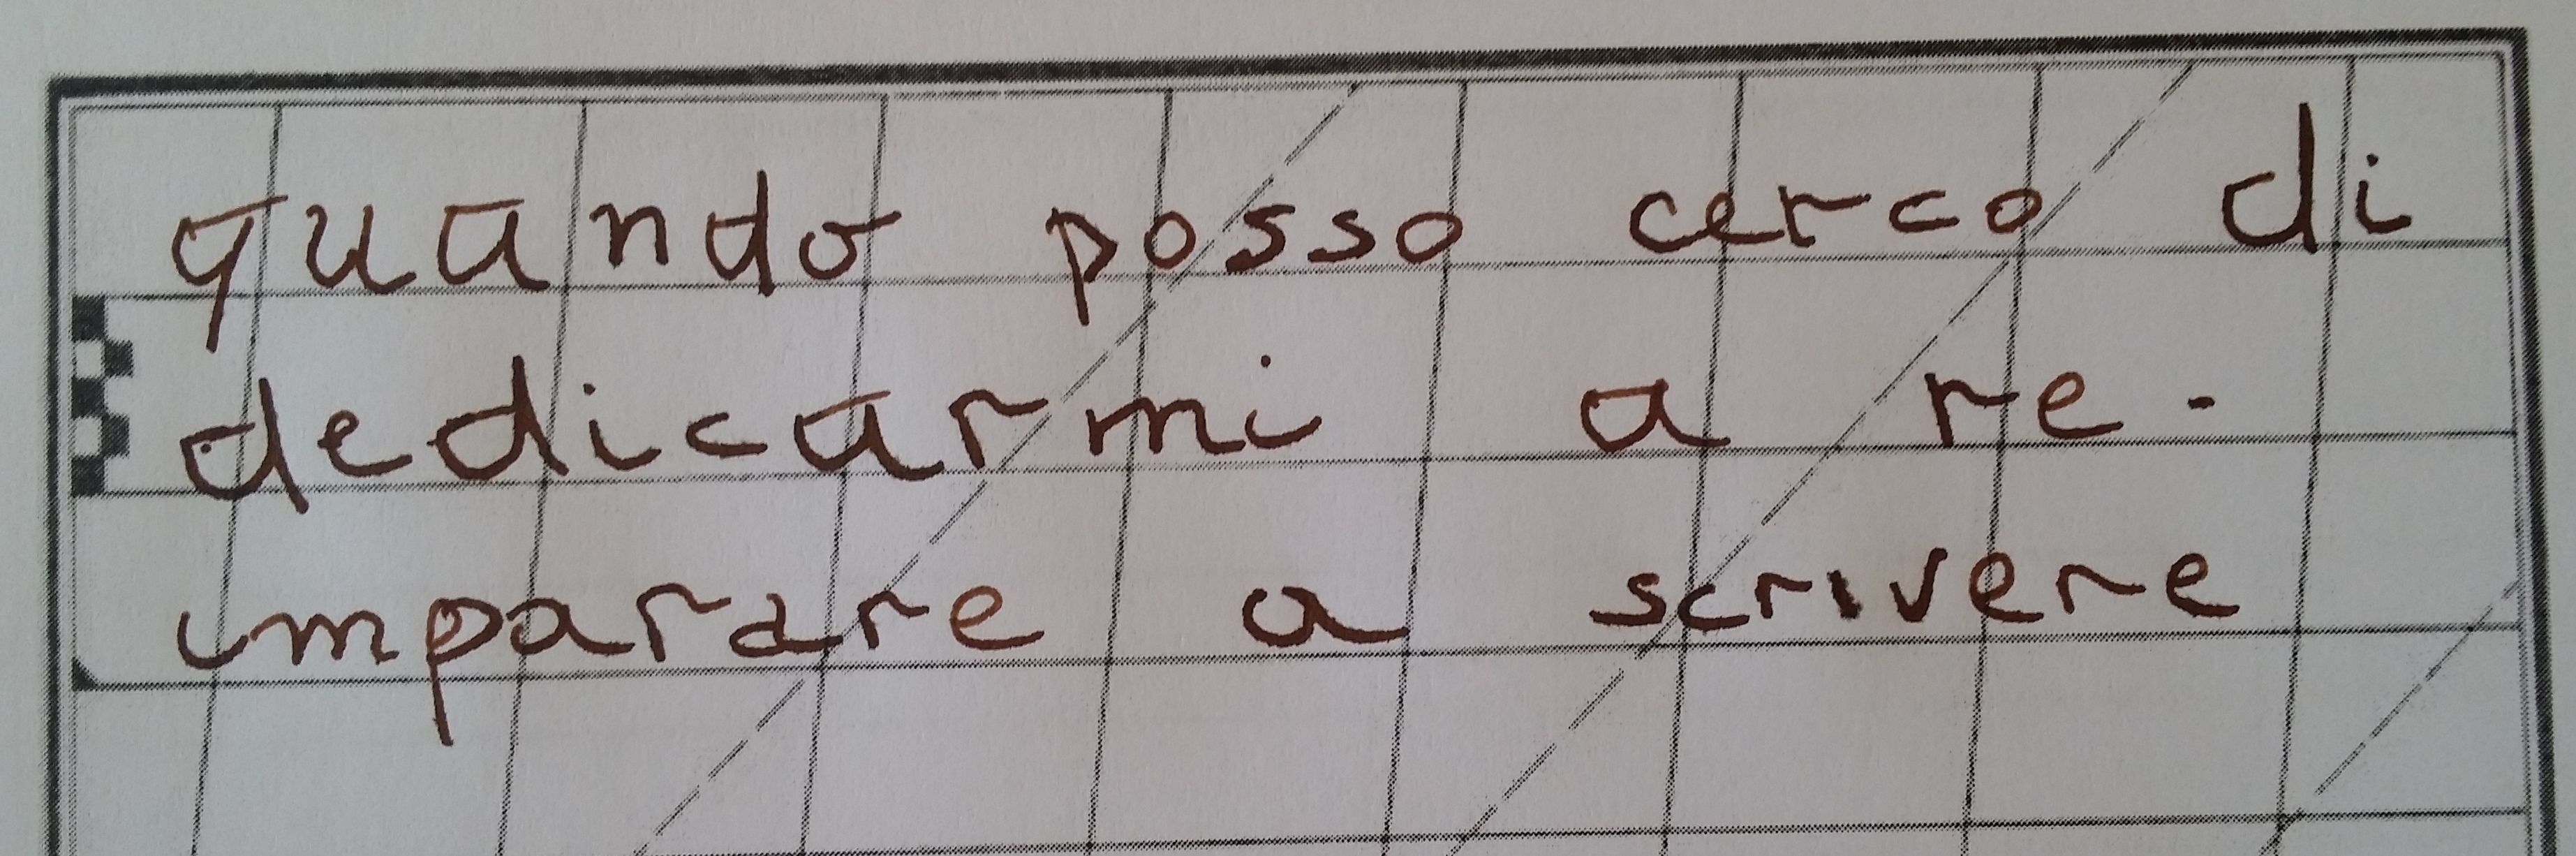 quando posso cerco di
dedicarmi a re-
imparare a scrivere